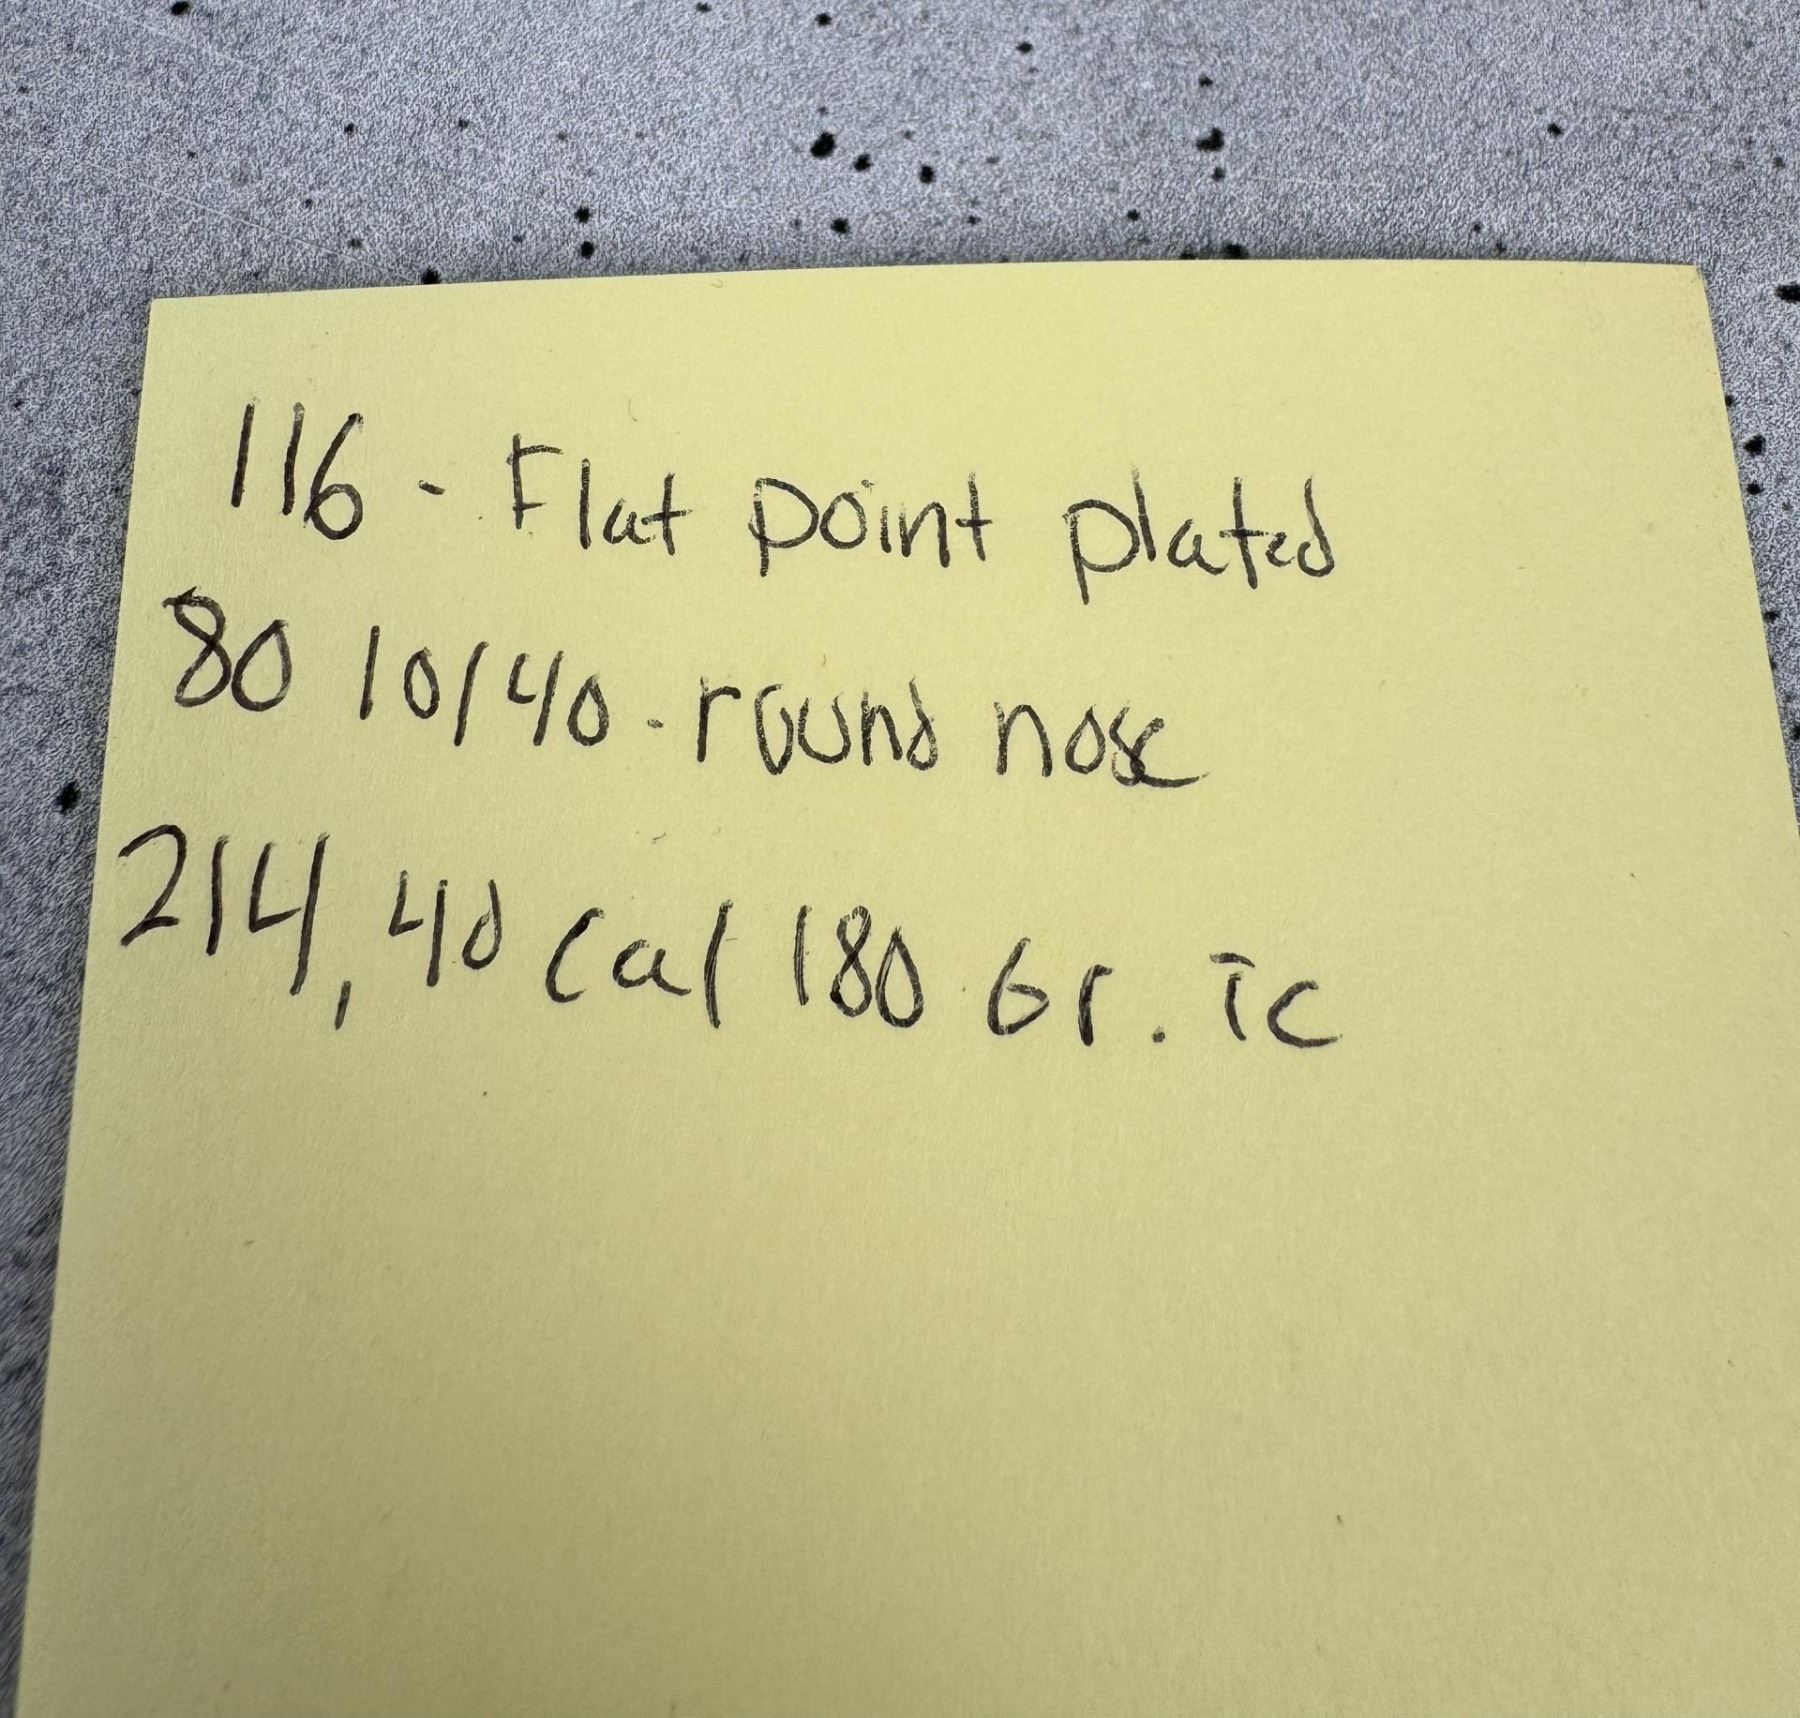 116 - Flat point plated
80 10/40 - round nose
214, 40 Cal 180 Gr. TC